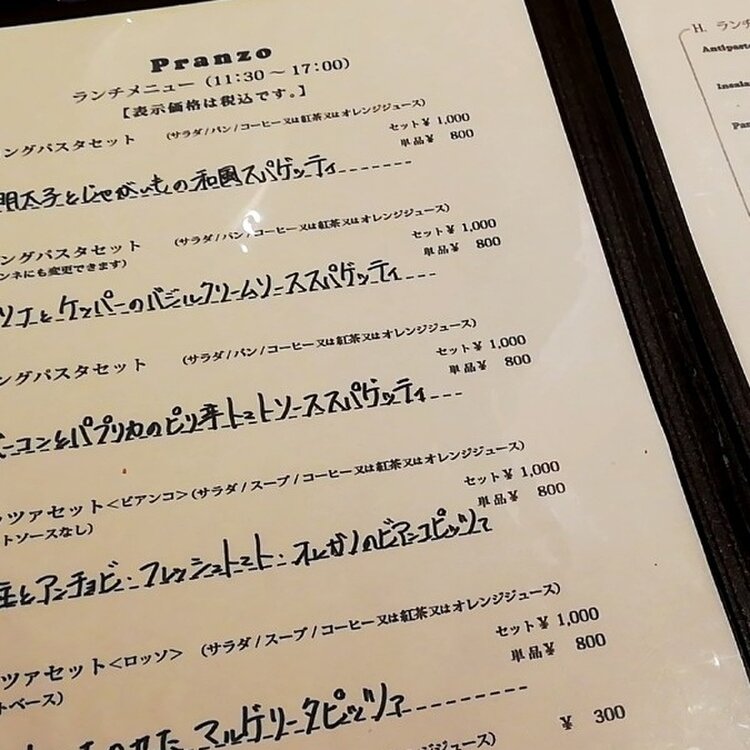 Pranzo
ランチメニュー（11:30～17:00）
【表示価格は税込です。】
ングパスタセット （サラダ/パン/コーヒー又は紅茶又はオレンジジュース） セット¥ 1,000
単品¥ 800
明太子とじゃがいもの和風スパゲッティ
ングパスタセット （サラダ/パン/コーヒー又は紅茶又はオレンジジュース） セット¥ 1,000
ンネにも変更できます） 単品¥ 800
とケッパーのバジルクリームソーススパゲッティ
ングパスタセット （サラダ/パン/コーヒー又は紅茶又はオレンジジュース） セット¥ 1,000
単品¥ 800
ーコンとパプリカのピリ辛トマトソーススパゲッティ
ッツァセット<ビアンコ>（サラダ/スープ/コーヒー又は紅茶又はオレンジジュース） セット¥ 1,000
トソースなし） 単品¥ 800
とアンチョビ・フレッシュトマト・オレガノのビアンコピッツァ
ッツァセット<ロッソ> （サラダ/スープ/コーヒー又は紅茶又はオレンジジュース） セット¥ 1,000
トベース） 単品¥ 800
マルゲリータピッツァ
¥ 300
オレンジジュース）
H. ランチ
Antipast
Insala
Pas